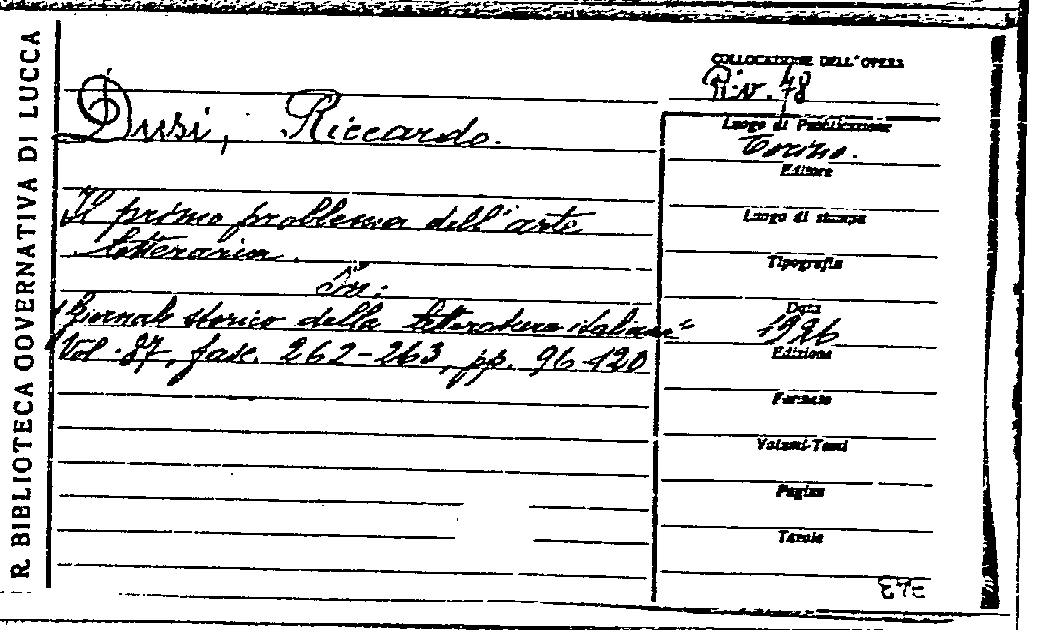 R. BIBLIOTECA GOVERNATIVA DI LUCCA
COLLOCAZIONE DELL'OPERA
Riv. 48
Dusi, Riccardo.
Luogo di Pubblicazione
Torino.
Editore
Il primo problema dell'arte
letteraria.
Luogo di stampa
Tipografia
In:
"Giornale storico della letteratura italiana"
Data
1926
Vol. 87, fasc. 262-263, pp. 96-120
Edizione
Formato
Volumi-Tomi
Pagine
Tavole